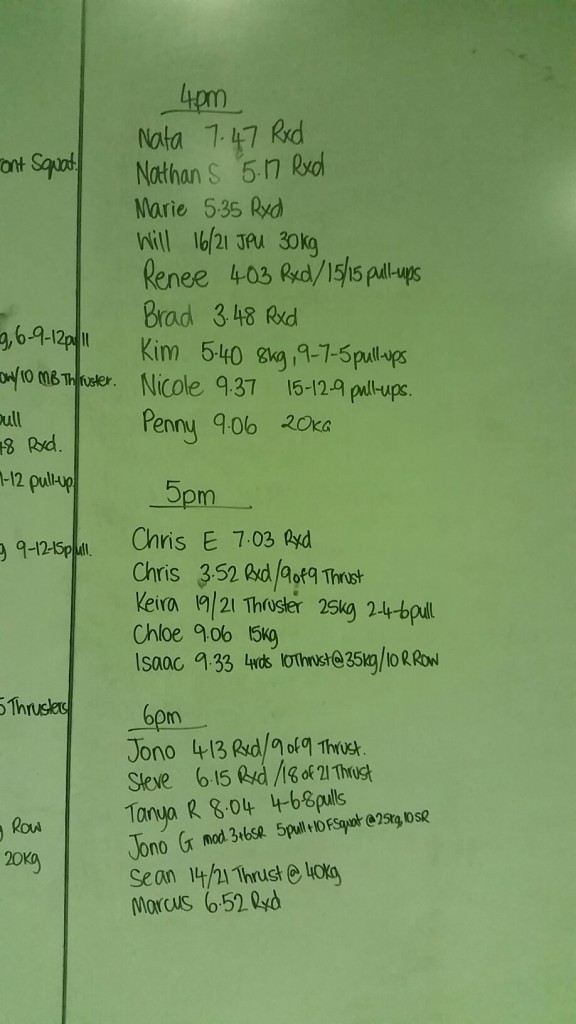 ont Squat.
g, 6-9-12pull
ow/10 MB Thruster.
pull
48 Rxd.
1-12 pull-up
g 9-12-15pull.
5 Thrusters
g Row
20kg
4pm
Nata 7.47 Rxd
Nathan S 5.17 Rxd
Marie 5.35 Rxd
Will 16/21 JPU 30kg
Renee 4.03 Rxd/15/15 pull-ups
Brad 3.48 Rxd
Kim 5.40 8kg, 9-7-5 pull-ups
Nicole 9.37 15-12-9 pull-ups.
Penny 9.06 20kg
5pm
Chris E 7.03 Rxd
Chris 3.52 Rxd/9 of 9 Thrust
Keira 19/21 Thruster 25kg 2-4-6pull
Chloe 9.06 15kg
Isaac 9.33 4rds 10Thrust@35kg/10 R Row
6pm
Jono 4.13 Rxd/9 of 9 Thrust.
Steve 6.15 Rxd /18 of 21 Thrust
Tanya R 8.04 4-6-8pulls
Jono G mod 3+6SR 5pull+10FSquat @25kg, 10SR
Sean 14/21 Thrust @ 40kg
Marcus 6.52 Rxd